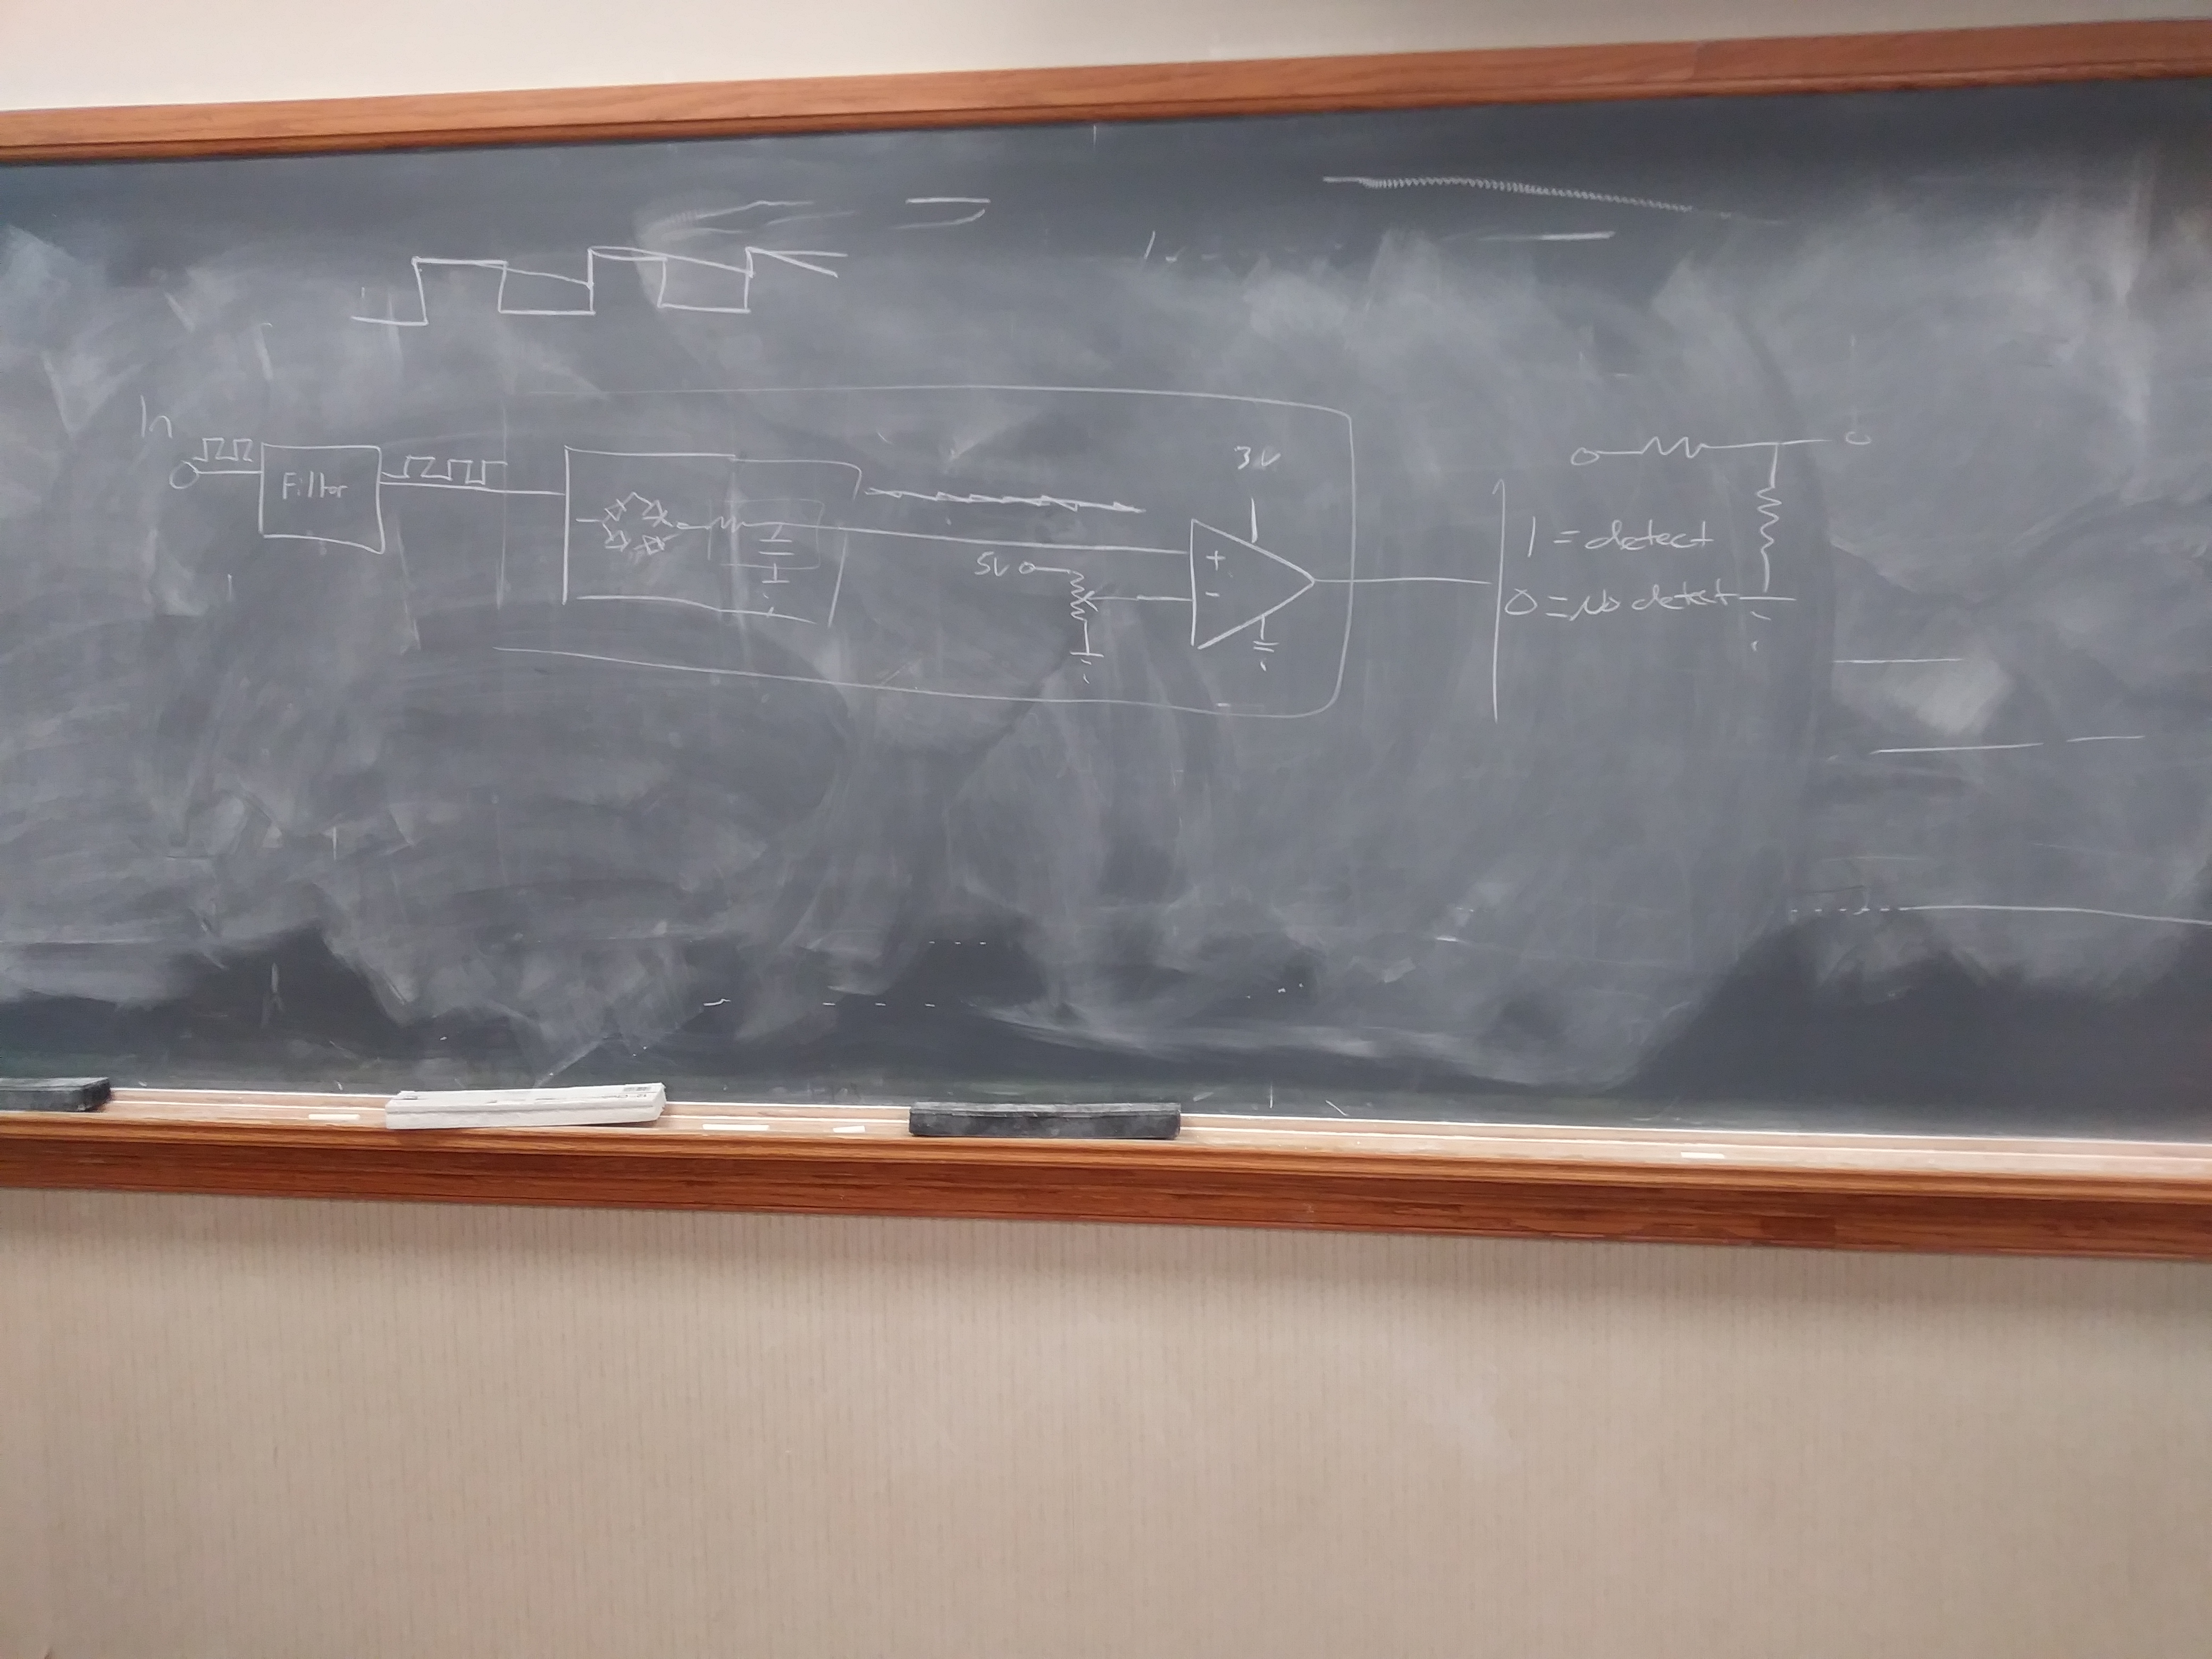 In
Filter
3V
5V
+
-
1 = detect
0 = No detect